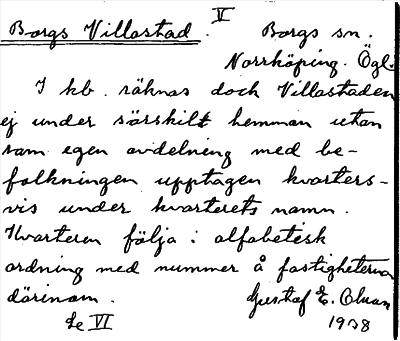 V
Borgs Villastad. Borgs sn.
Norrköping. Ögl.
I kb. räknas dock Villastaden
ej under särskilt hemman utan
som egen avdelning med be-
folkningen upptagen kvarters-
vis under kvarterets namn.
Kvarteren följa i alfabetisk
ordning med nummer å fastigheterna
därinom. Gustaf E.
Se VI 1938